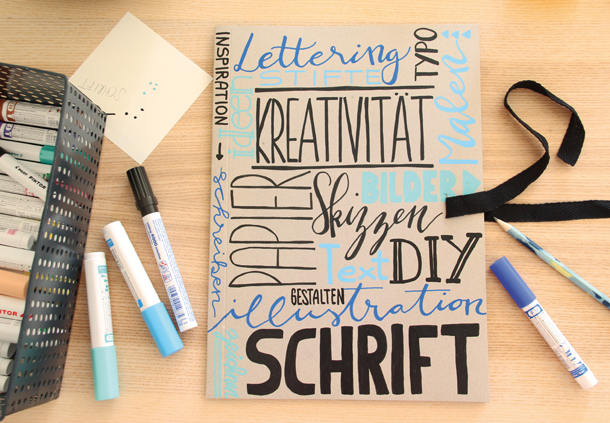 INSPIRATION →
Lettering
TYPO
STIFTE
Ideen
Malen
KREATIVITÄT
schreiben
PAPIER
BILDER
Skizzen
Text
DIY
GESTALTEN
illustration
SCHRIFT
zeichnen